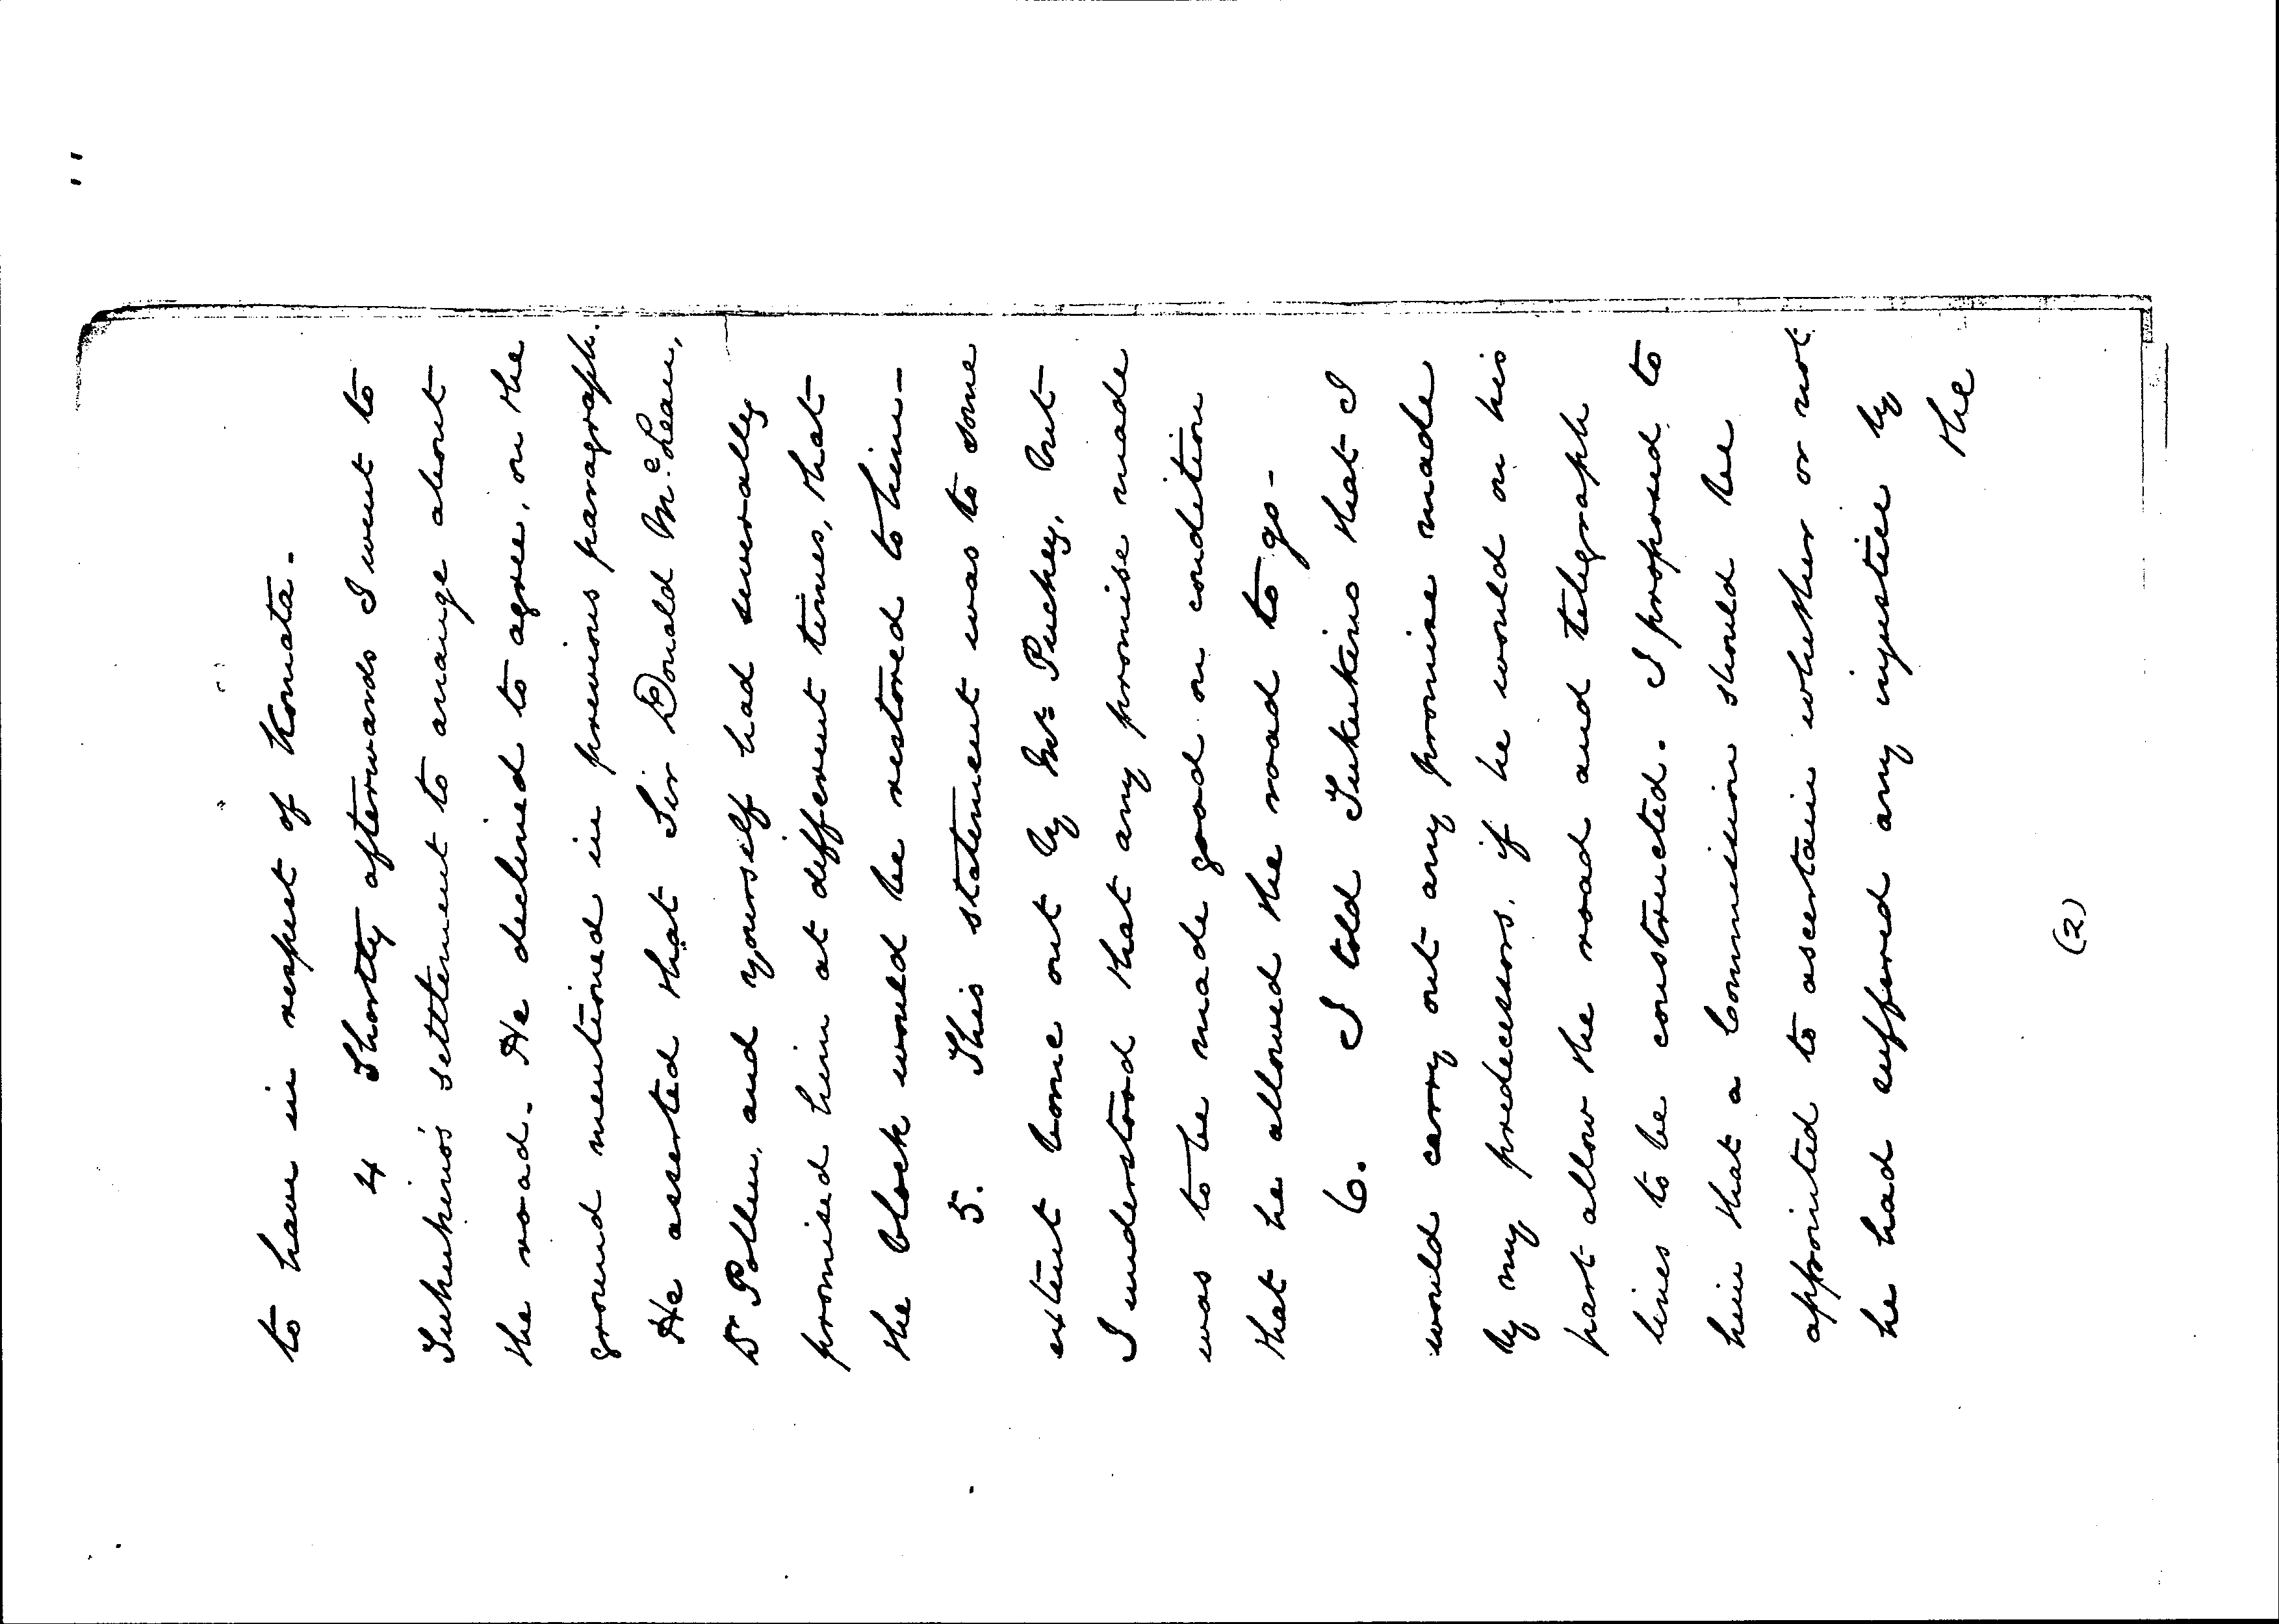 to have in respect of Komata.
4 Shortly afterwards I went to
Tukukino's settlement to arrange about
the road. He declined to agree, on the
ground mentioned in previous paragraph.
He asserted that Sir Donald McLean,
Dr Pollen, and yourself had severally
promised him at different times, that
the block would be restored to him -
5. This statement was to some
extent borne out by Mr Puckey, but
I understood that any promise made
was to be made good on condition
that he allowed the road to go -
6. I told Tukukino that I
would carry out any promise made
by my predecessors, if he would on his
part allow the road and telegraph
lines to be constructed. I proposed to
him that a Commission should be
appointed to ascertain whether or not
he had suffered any injustice by
the
(2)